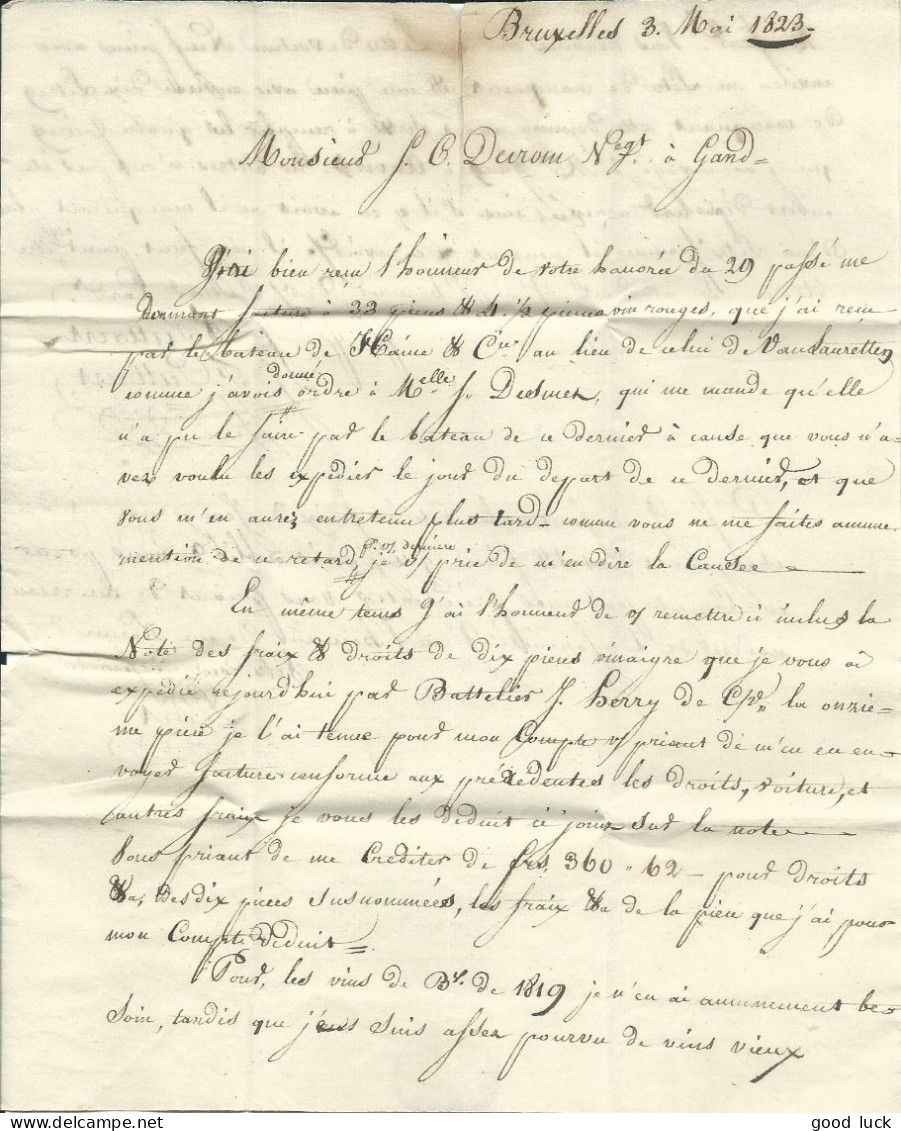 Bruxelles 3. Mai 1823.
Monsieur J. C. Decrom Negt. à Gand=
J'ai bien recu l'honneur de votre honorée du 29 passé me
donnant facture à 33 pieces & 4 1/2 pieces vin rouges, que j'ai recu
par le bateau de Haine & Cie au lieu de celui de Vanlauretten
comme j'avois donné ordre à Melle J. Desmet, qui me mande qu'elle
n'a pu le faire par le bateau de ce dernier à cause que vous n'a-
vez voulu les expédier le jour du depart de ce dernier, et que
vous m'en aurez entretenu plus tard - comme vous ne me faites aucune
mention de ce retard, pr. v/ derniere je v/ prie de m'en dire la Causee
En même tems J'ai l'honneur de v/ remettre ci inclus la
Note des fraix & droits de dix pieces vinaigre que je vous ai
expedié aujourd'hui par Battelier J. Herry de Cpe. la onzie-
me pièce je l'ai tenue pour mon Compte v/ priant de m'en en en-
voyer facture conforme aux précédentes les droits, voiture, et
autres fraix je vous les deduit ci joint sur la note
Vous priant de me Créditer de frs. 360 " 62 - pour droits
&a, des dix pieces susnommées, les fraix &a de la piece que j'ai pour
mon Compte déduit=
Pour, les vins de Bx. de 1819 je n'en ai aucunement be-
soin, tandis que j'en suis assez pourvu de vins vieux
good luck